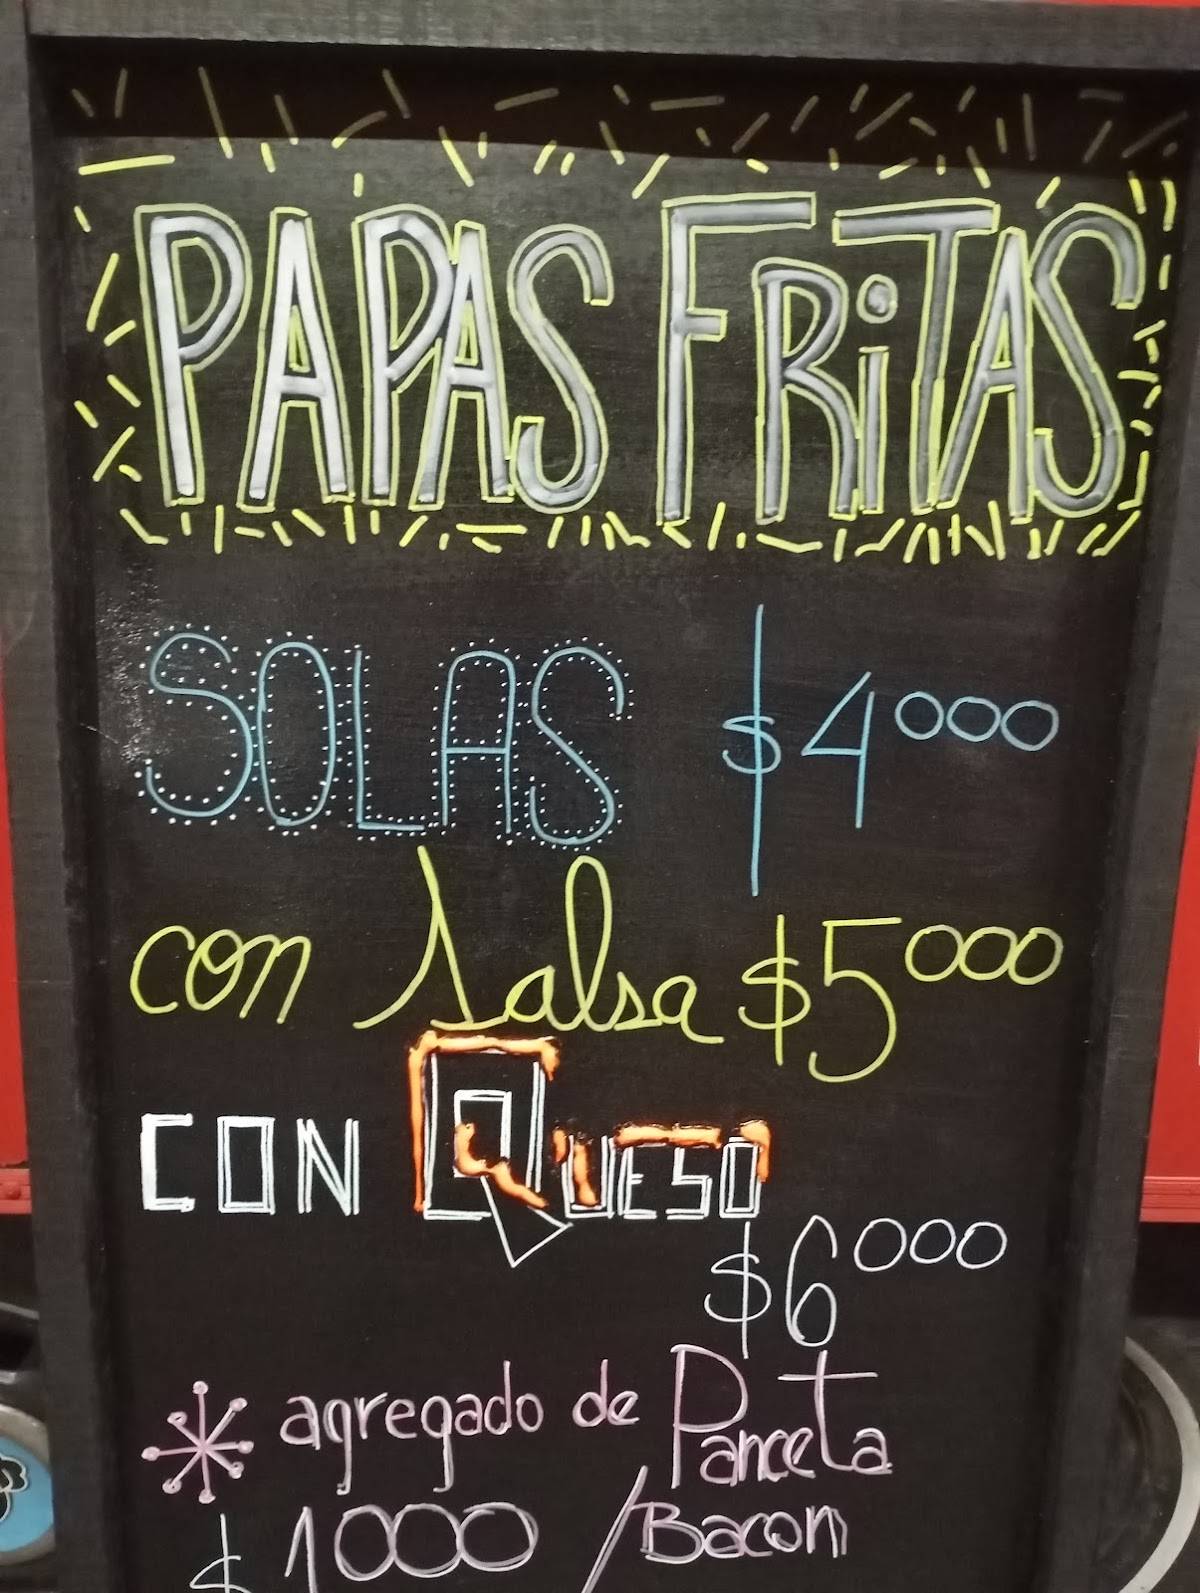 PAPAS FRiTAS
SOLAS $4000
con salsa $5000
CON QUESO
$6000
* agregado de Panceta
$1000 / Bacon